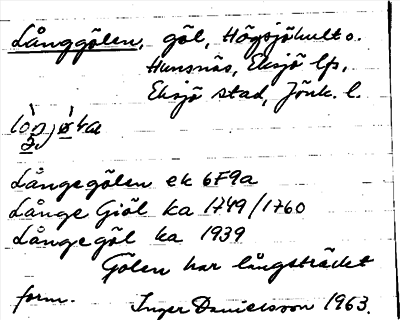 Långgölen, göl, Högsjöhult o.
Hunsnäs, Eksjö lfs,
Eksjö stad, Jönk. l.
Långegölen ek 6F9a
Långe Giöl ka 1749/1760
Långegöl ka 1939
Gölen har långsträckt
form. Inger Danielsson 1963.